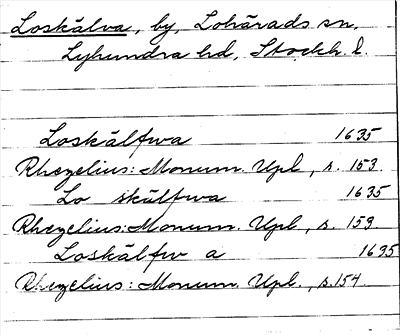 Loskälva, by, Lohärads sn,
Lyhundra hd, Stockh. l.
Loskälfwa 1635
Rhezelius: Monum. Upl., s. 153.
Lo skälffwa 1635
Rhezelius: Monum. Upl., s. 153.
Loskälfw a 1635
Rhezelius: Monum. Upl., s. 154.